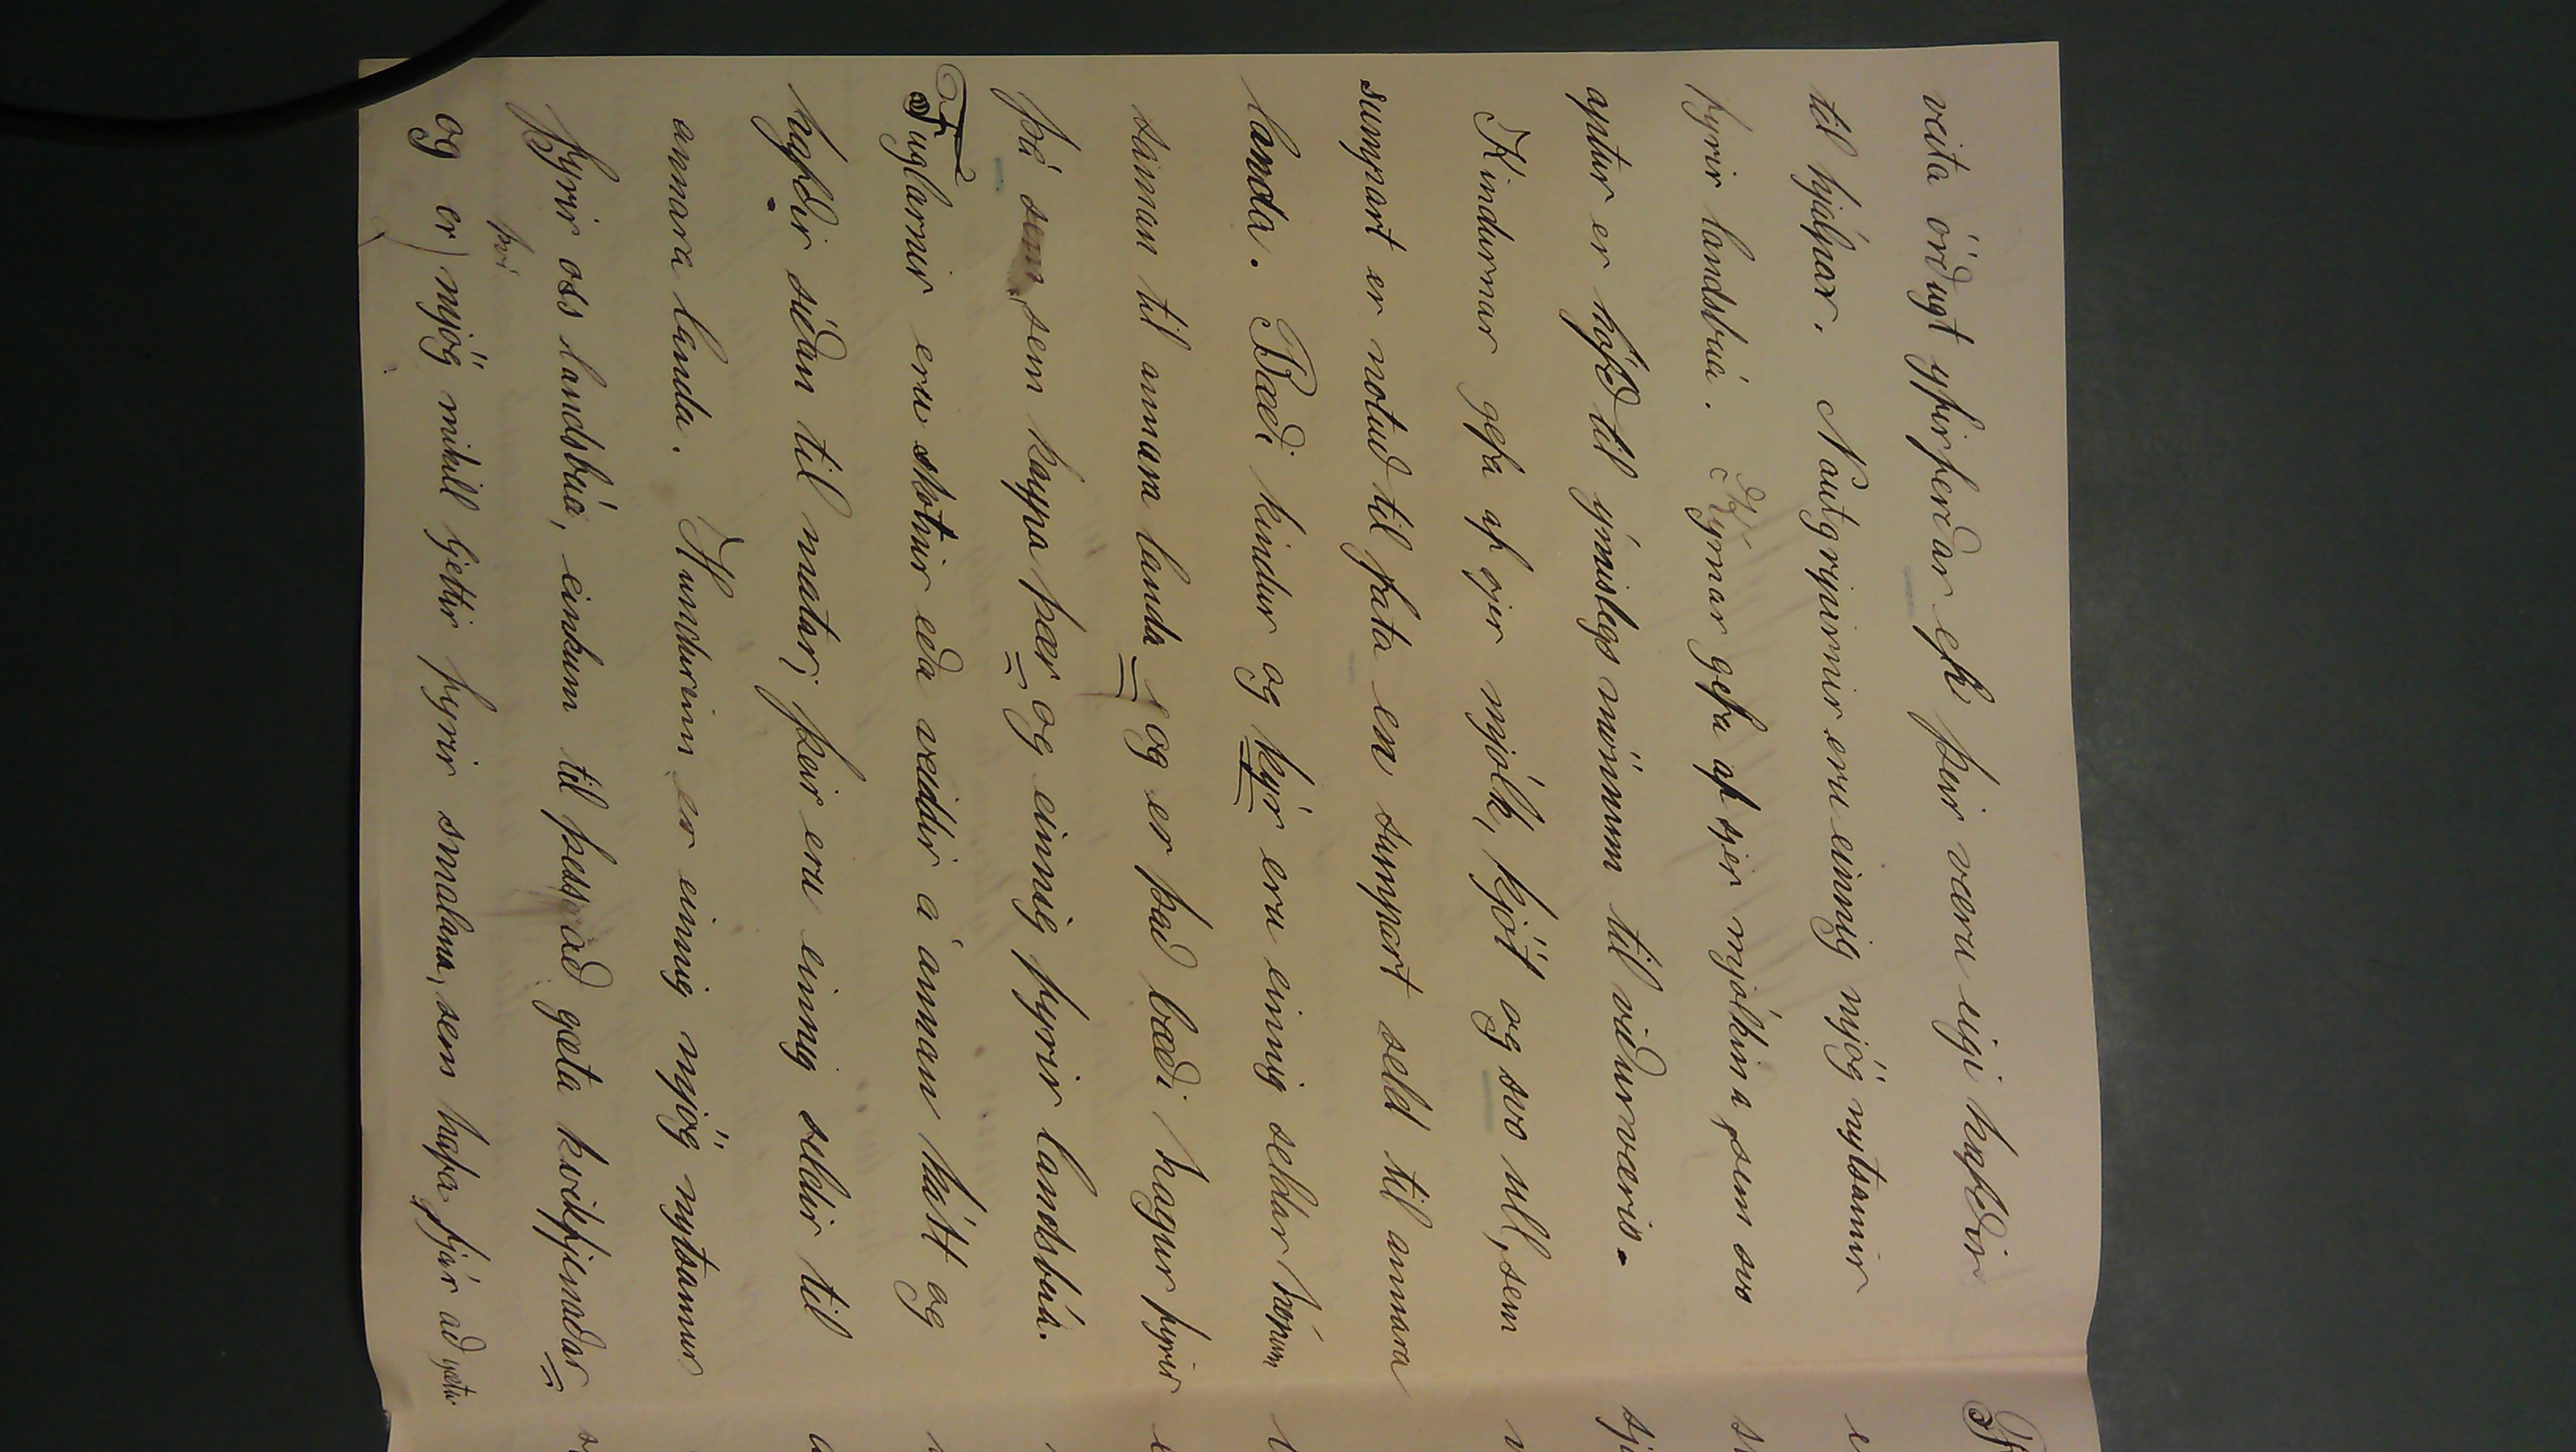 veita örðugt yfirferðar ef þeir væru eigi hafðir
til hjálpar. Nautgripirnir eru einnig mjög nytsamir
fyrir landsbúa. Kýrnar gefa af sjer mjólkina, sem svo
aptur er höfð til ýmislegs mörnum til viðurværis.
Kindurnar gefa af sjer mjólk, kjöt og svo ull, sem
sumpart er notuð til fata en sumpart seld til annara
landa. Bæði kindur og kýr eru einnig seldar
saman til annara landa og er það bæði hagur fyrir
þá sem, sem kaupa þær og einnig fyrir landsbúa.
Fuglarnir eru skotnir eða veiddir á annan hátt og
hafðir síðan til matar; þeir eru einnig seldir til
annara landa. Hundurinn er einnig mjög nytsamur
fyrir oss landsbúa, einkum til þess að gæta kvikfjenaðar
því
og er mjög mikill ljettir fyrir smalana, sem hafa fjár að gæta